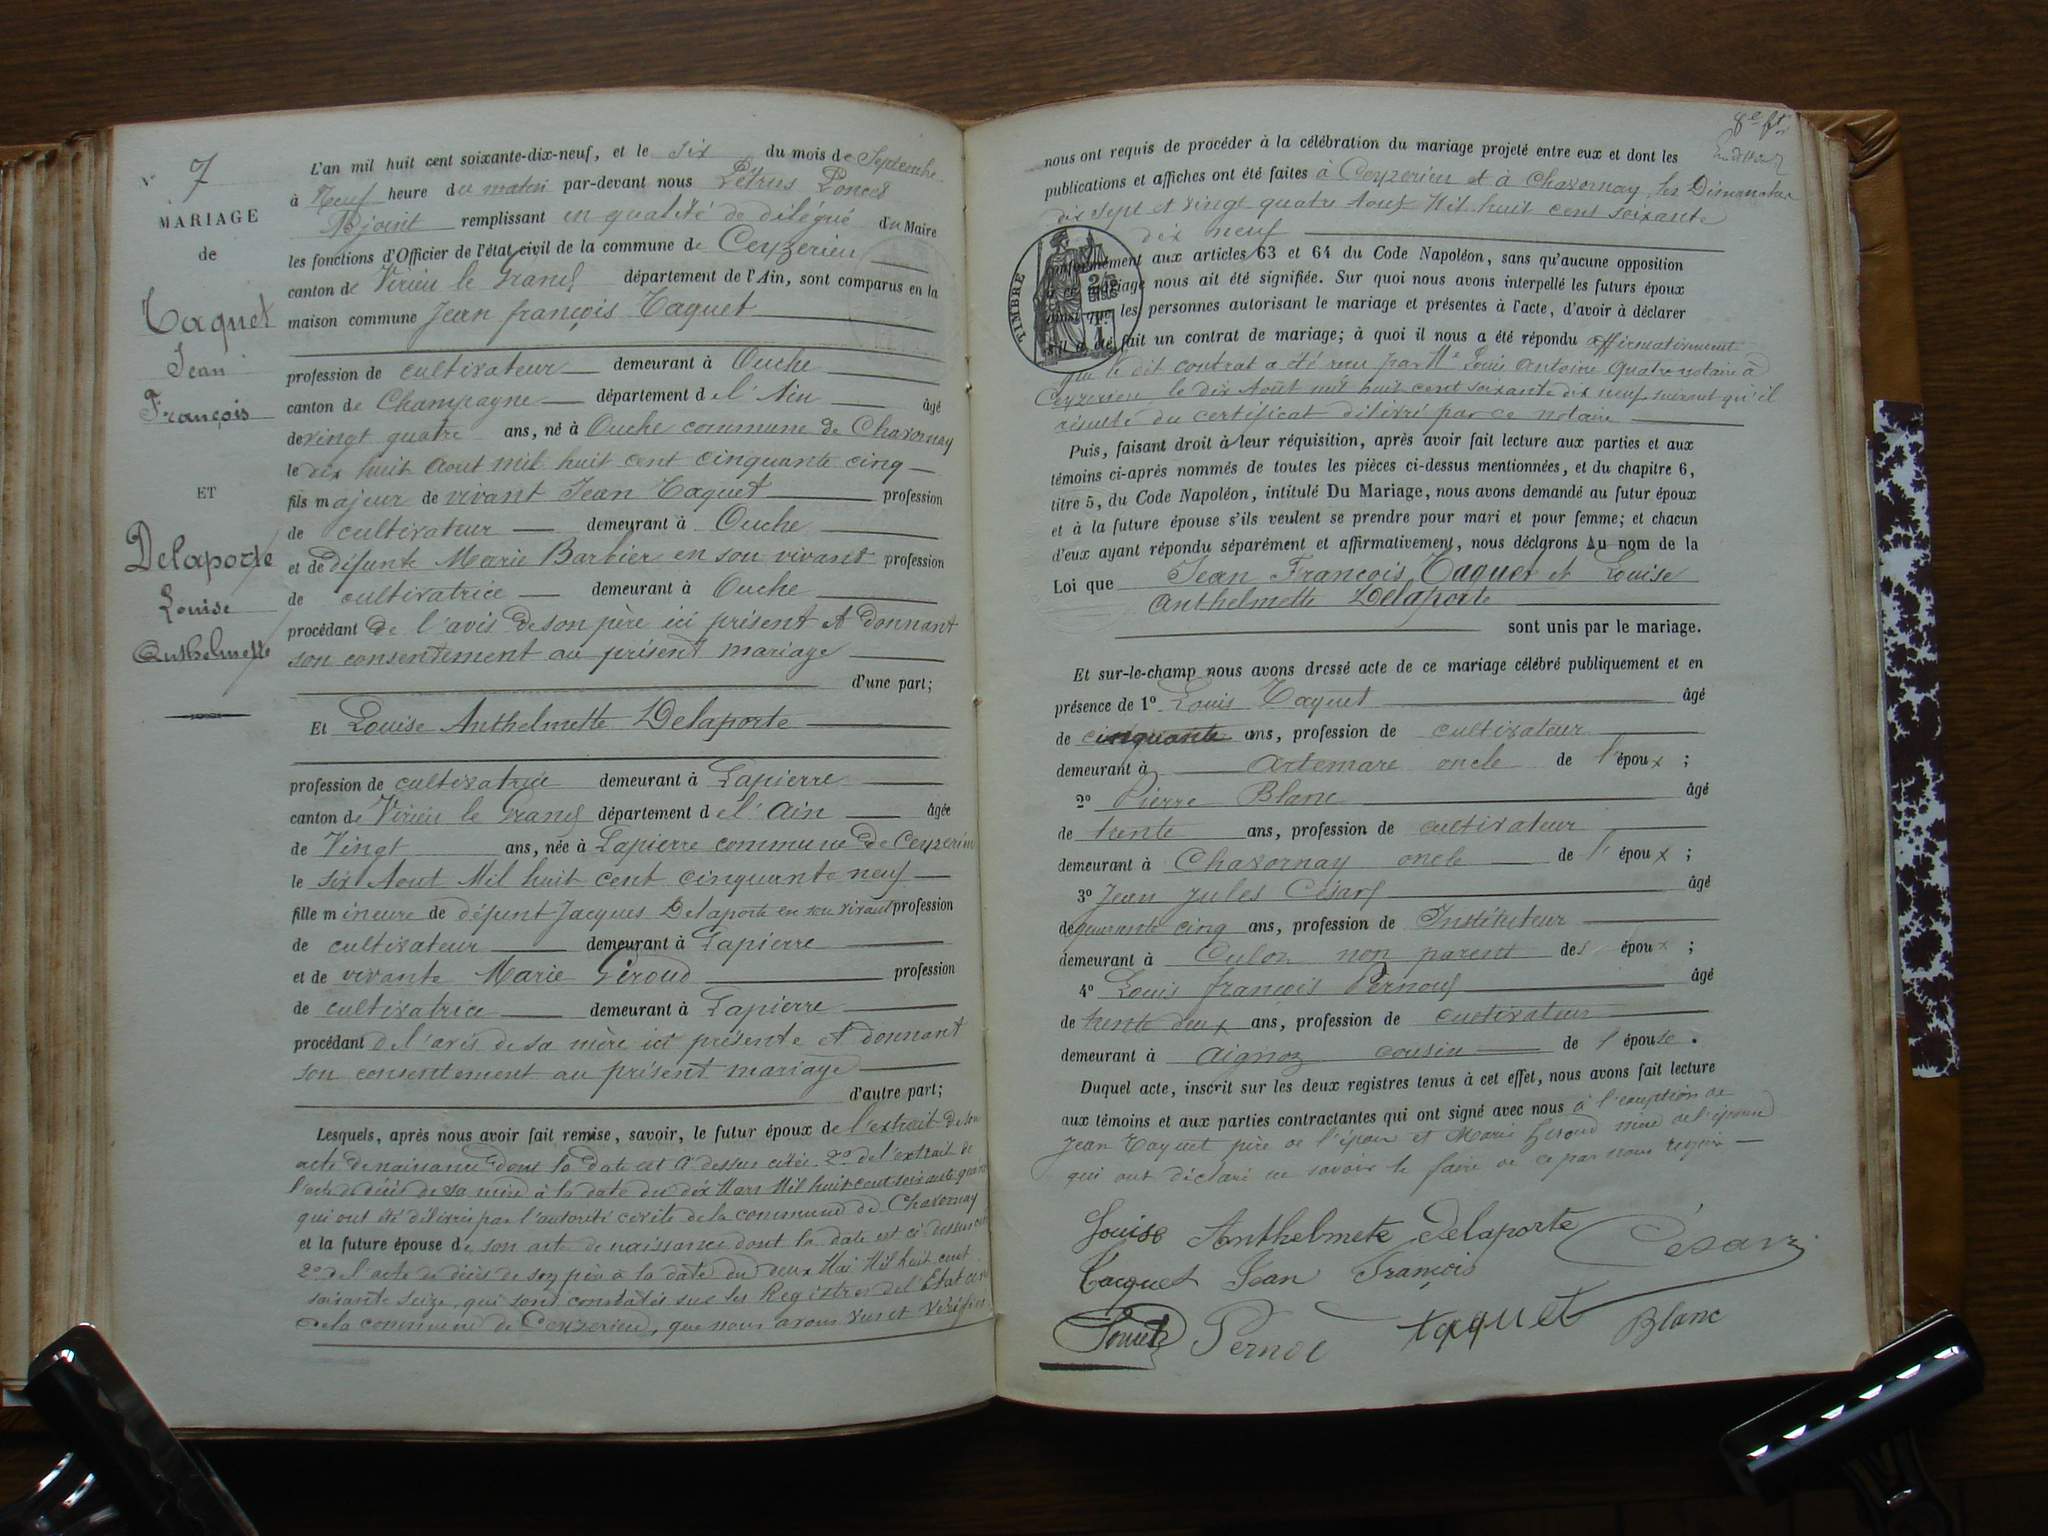 N° 7
MARIAGE
de
Taquet
Jean
François
ET
Delaporte
Louise
Anthelmette
L'an mil huit cent soixante-dix-neuf, et le six du mois de Septembre
à Neuf heure du matin par-devant nous Pétrus Poncet
Adjoint remplissant en qualité de délégué du Maire
les fonctions d'Officier de l'état civil de la commune de Ceyzerieu
canton de Virieu le Grand département de l'Ain, sont comparus en la
maison commune Jean françois Taquet
profession de cultivateur demeurant à Ouche
canton de Champagne département de l'Ain âgé
de vingt quatre ans, né à Ouche commune de Chavornay
le dix huit Aout mil huit cent cinquante cinq
fils majeur de vivant Jean Taquet profession
de cultivateur demeurant à Ouche
et de défunte Marie Barbier en son vivant profession
de cultivatrice demeurant à Ouche
procédant de l'avis de son père ici présent et donnant
son consentement au présent mariage
d'une part;
Et Louise Anthelmette Delaporte
profession de cultivatrice demeurant à Lapierre
canton de Virieu le Grand département de l'Ain âgée
de Vingt ans, née à Lapierre commune de Ceyzerieu
le six Aout Mil huit cent cinquante neuf
fille mineure de défunt Jacques Delaporte en son vivant profession
de cultivateur demeurant à Lapierre
et de vivante Marie Géroud profession
de cultivatrice demeurant à Lapierre
procédant de l'avis de sa mère ici présente et donnant
son consentement au présent mariage
d'autre part;
Lesquels, après nous avoir fait remise, savoir, le futur époux de l'extrait de son
acte de naissance dont la date est ci dessus citée 2° de l'extrait de
l'acte de décès de sa mère à la date du dix Mars Mil huit cent soixante
qui ont été délivrés par l'autorité civile de la commune de Chavornay
et la future épouse de son acte de naissance dont la date est ci dessus
2° de l'acte de décès de son père à la date du deux Mai Mil huit cent
soixante seize, qui sont constatés sur les Registres de l'Etat civil
de la commune de Ceyzerieu, que nous avons vus et vérifiés
8e ft
nous ont requis de procéder à la célébration du mariage projeté entre eux et dont les
publications et affiches ont été faites à Ceyzerieu et à Chavornay, les Dimanches
dix sept et vingt quatre Aout Mil huit cent soixante
dix neuf
TIMBRE
conformément aux articles 63 et 64 du Code Napoléon, sans qu'aucune opposition
à ce mariage nous ait été signifiée. Sur quoi nous avons interpellé les futurs époux
ainsi que les personnes autorisant le mariage et présentes à l'acte, d'avoir à déclarer
s'il a été fait un contrat de mariage; à quoi il nous a été répondu affirmativement
que le dit contrat a été reçu par Me Louis Antoine Quatre notaire à
Ceyzerieu le dix Août mil huit cent soixante dix neuf suivant qu'il
résulte du certificat délivré par ce notaire
Puis, faisant droit à leur réquisition, après avoir fait lecture aux parties et aux
témoins ci-après nommés de toutes les pièces ci-dessus mentionnées, et du chapitre 6,
titre 5, du Code Napoléon, intitulé Du Mariage, nous avons demandé au futur époux
et à la future épouse s'ils veulent se prendre pour mari et pour femme; et chacun
d'eux ayant répondu séparément et affirmativement, nous déclarons Au nom de la
Loi que Jean François Taquet et Louise
Anthelmette Delaporte
sont unis par le mariage.
Et sur-le-champ nous avons dressé acte de ce mariage célébré publiquement et en
présence de 1° Louis Taquet âgé
de cinquante ans, profession de cultivateur
demeurant à Artemare oncle de l'époux ;
2° Pierre Blanc âgé
de trente ans, profession de cultivateur
demeurant à Chavornay oncle de l'époux ;
3° Jean Jules César âgé
de quarante cinq ans, profession de Instituteur
demeurant à Culoz non parent des époux ;
4° Louis françois Pernoud âgé
de trente deux ans, profession de cultivateur
demeurant à Aignoz cousin de l'épouse .
Duquel acte, inscrit sur les deux registres tenus à cet effet, nous avons fait lecture
aux témoins et aux parties contractantes qui ont signé avec nous à l'exception de
Jean Taquet père de l'époux et Marie Géroud mère de l'épouse
qui ont déclaré ne savoir le faire de ce par nous requis
Louise Anthelmete Delaporte César
Tacquet Jean François
Poncet Pernod taquet Blanc